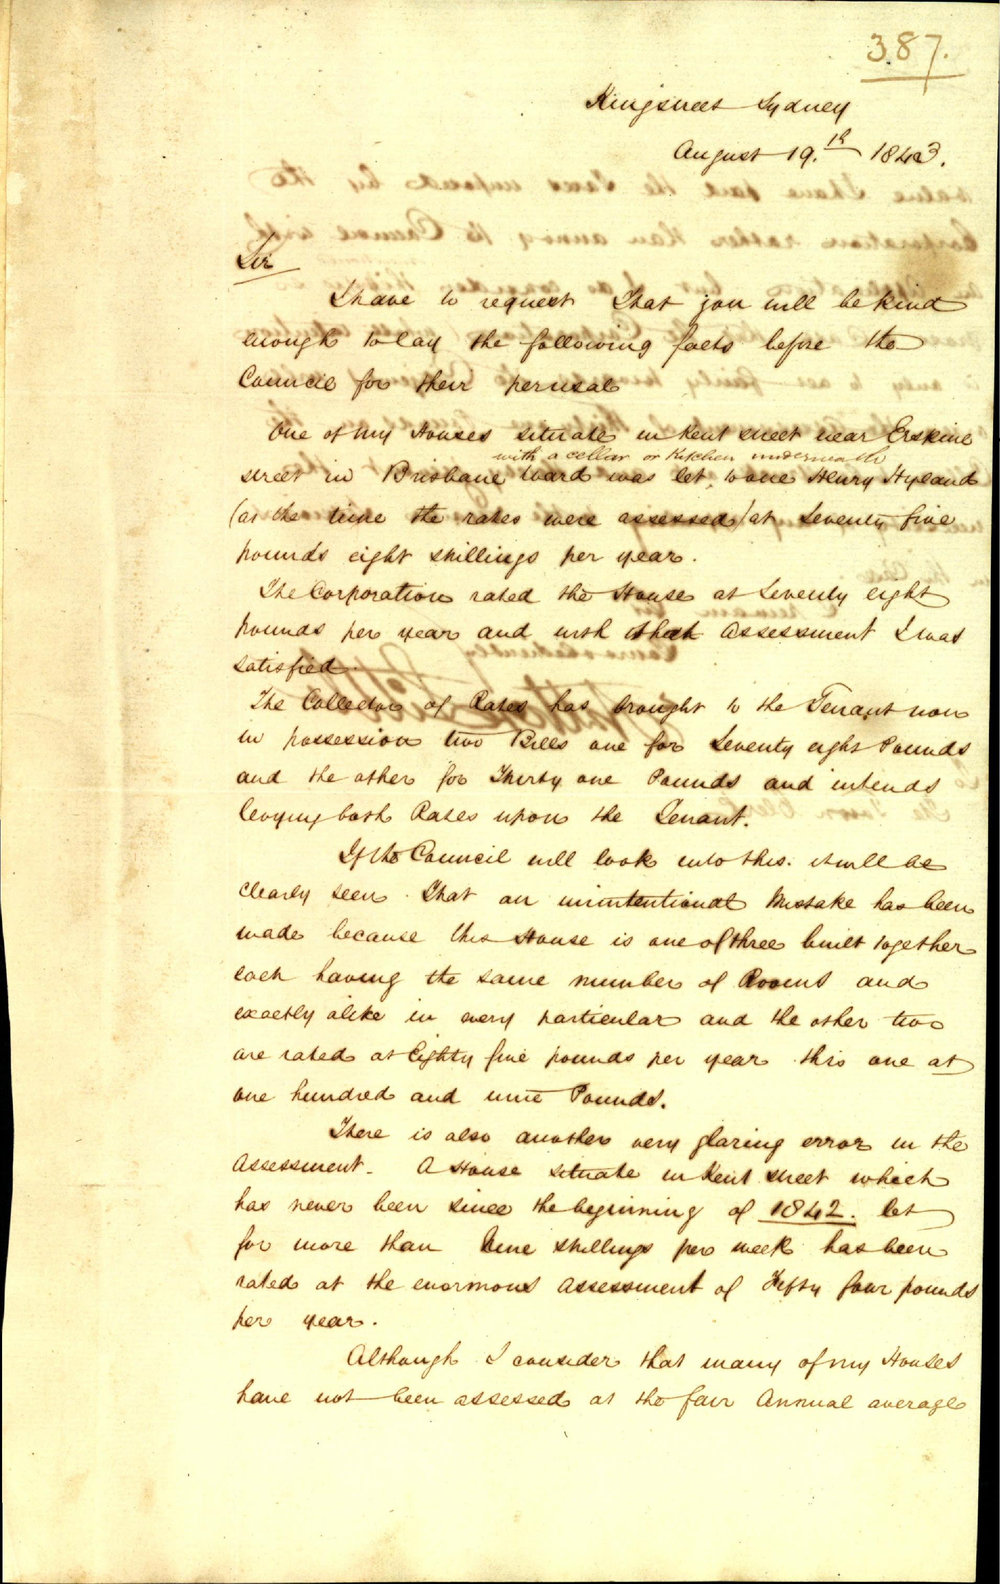 387.
Kingstreet Sydney
August 19.th 1843.
Sir
I have to request that you will be kind
enough to lay the following facts before the
Council for their perusal
One of my Houses situate in Kent street near Erskine
with a cellar or Kitchen underneath
street in Brisbane Ward was let, to one Henry Hyland
(at the time the rates were assessed) at Seventy five
pounds eight shillings per year.
The Corporation rated the House at Seventy eight
pounds per year and with that Assessment I was
satisfied.
The Collector of Rates has brought to the Tenant now
in possession two Bills one for Seventy eight Pounds
and the other for Thirty one Pounds and intends
levying both Rates upon the Tenant.
If the Council will look into this. it will be
clearly seen that an unintentional Mistake has been
made because this House is one of three built together
each having the same number of Rooms and
exactly alike in every particular and the other two
are rated at Eighty five pounds per year this one at
one hundred and nine Pounds.
There is also another very glaring error in the
Assessment. A House situate in Kent street which
has never been since the beginning of 1842. let
for more than Nine shillings per week has been
rated at the enormous Assessment of Fifty four pounds
per year.
Although I consider that many of my Houses
have not been assessed at the fair Annual average